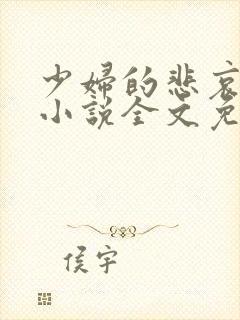 少婦的悲哀
小說全文免
侯宇